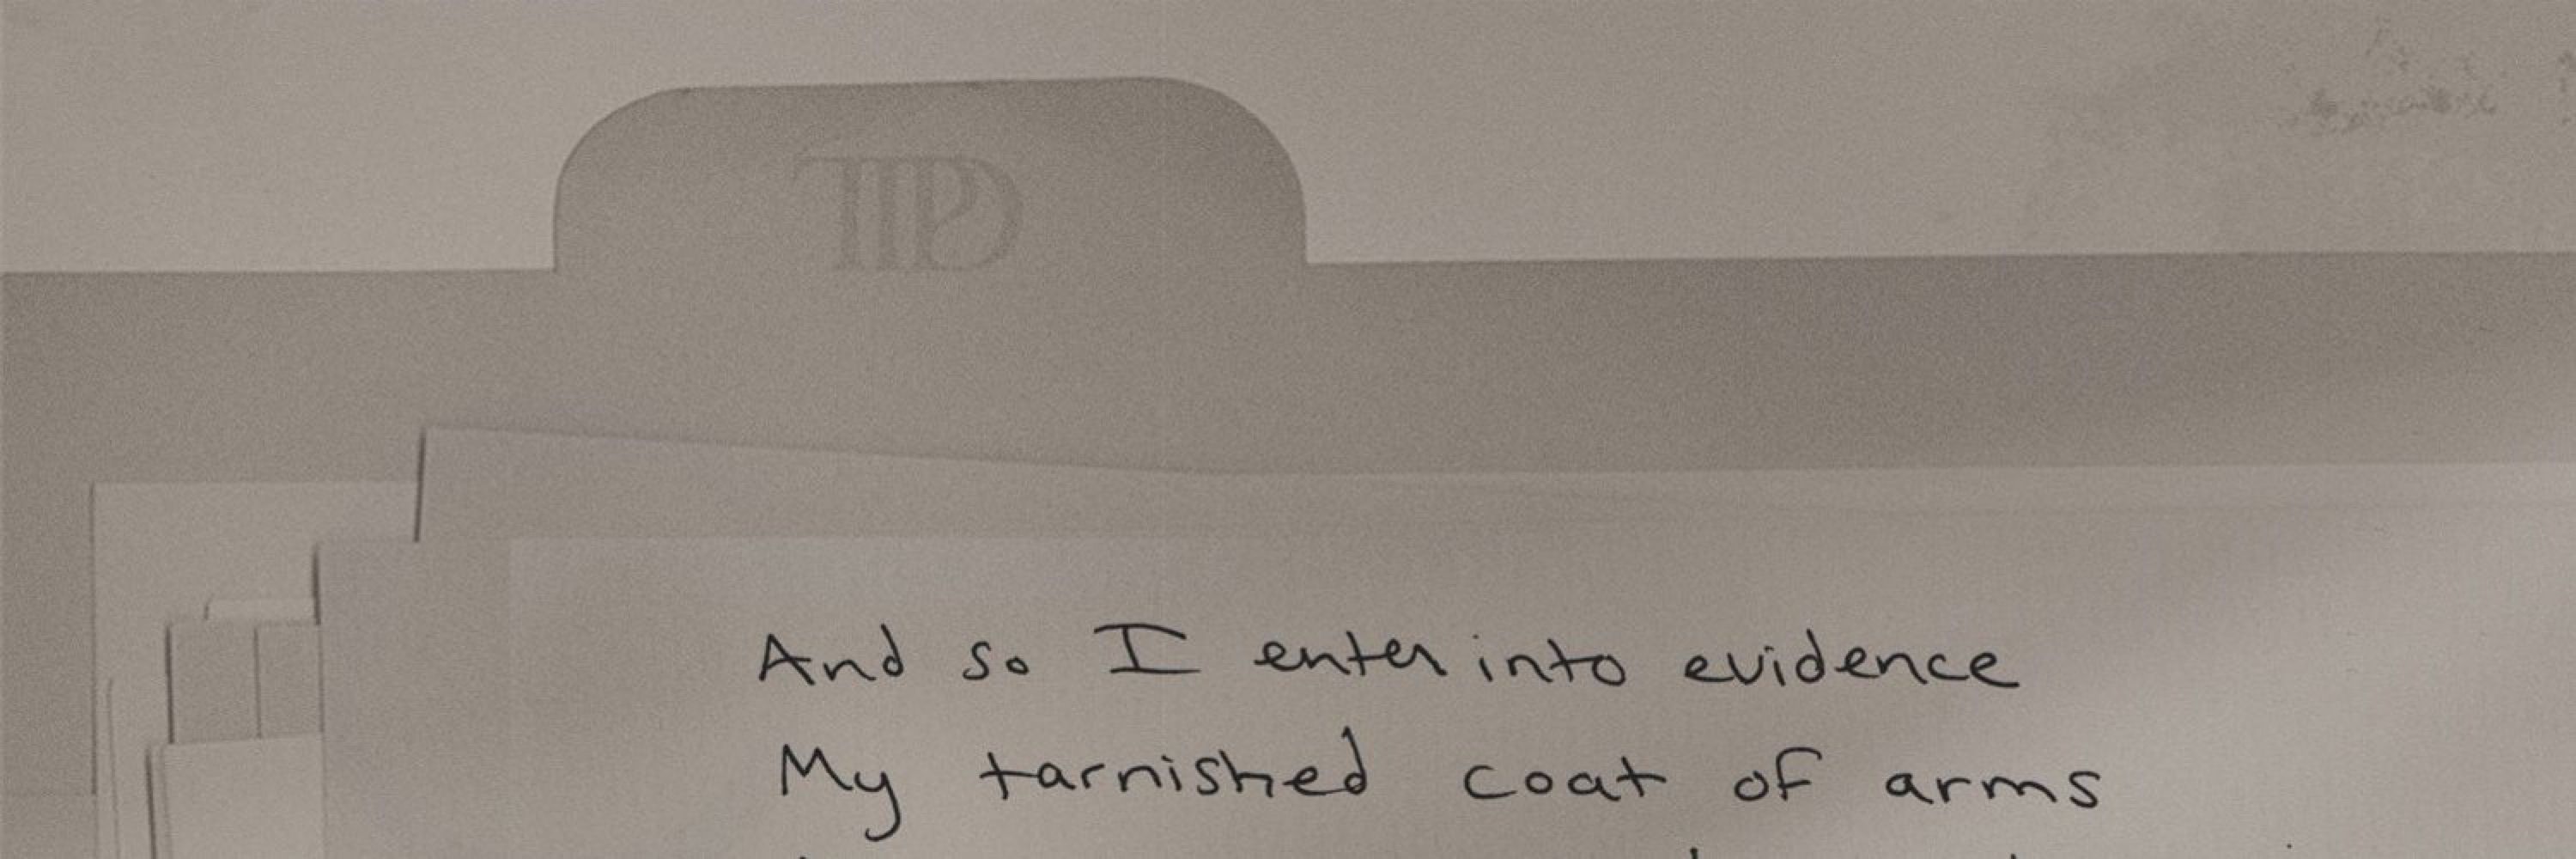 TTPD
And so I enter into evidence
My tarnished coat of arms